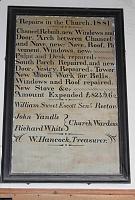 Repairs in the Church. 1881
Chancel Rebuilt, new Windows and
Door. Arch between Chancel
and Nave, new. Nave, Roof, Pi
and Windows, new
Pulpit and Desk repaired.
South Porch Repaired, and new
Door. Vestry, Repaired. Tower
New Wood Work for Bells.
Windows and Roof repaired.
New Stove &c.
Amount Expended £823.9.6
William Sweet Escott Senr. Rector
John Yandle
Richard White
Church Wardens
W. Hancock, Treasurer.